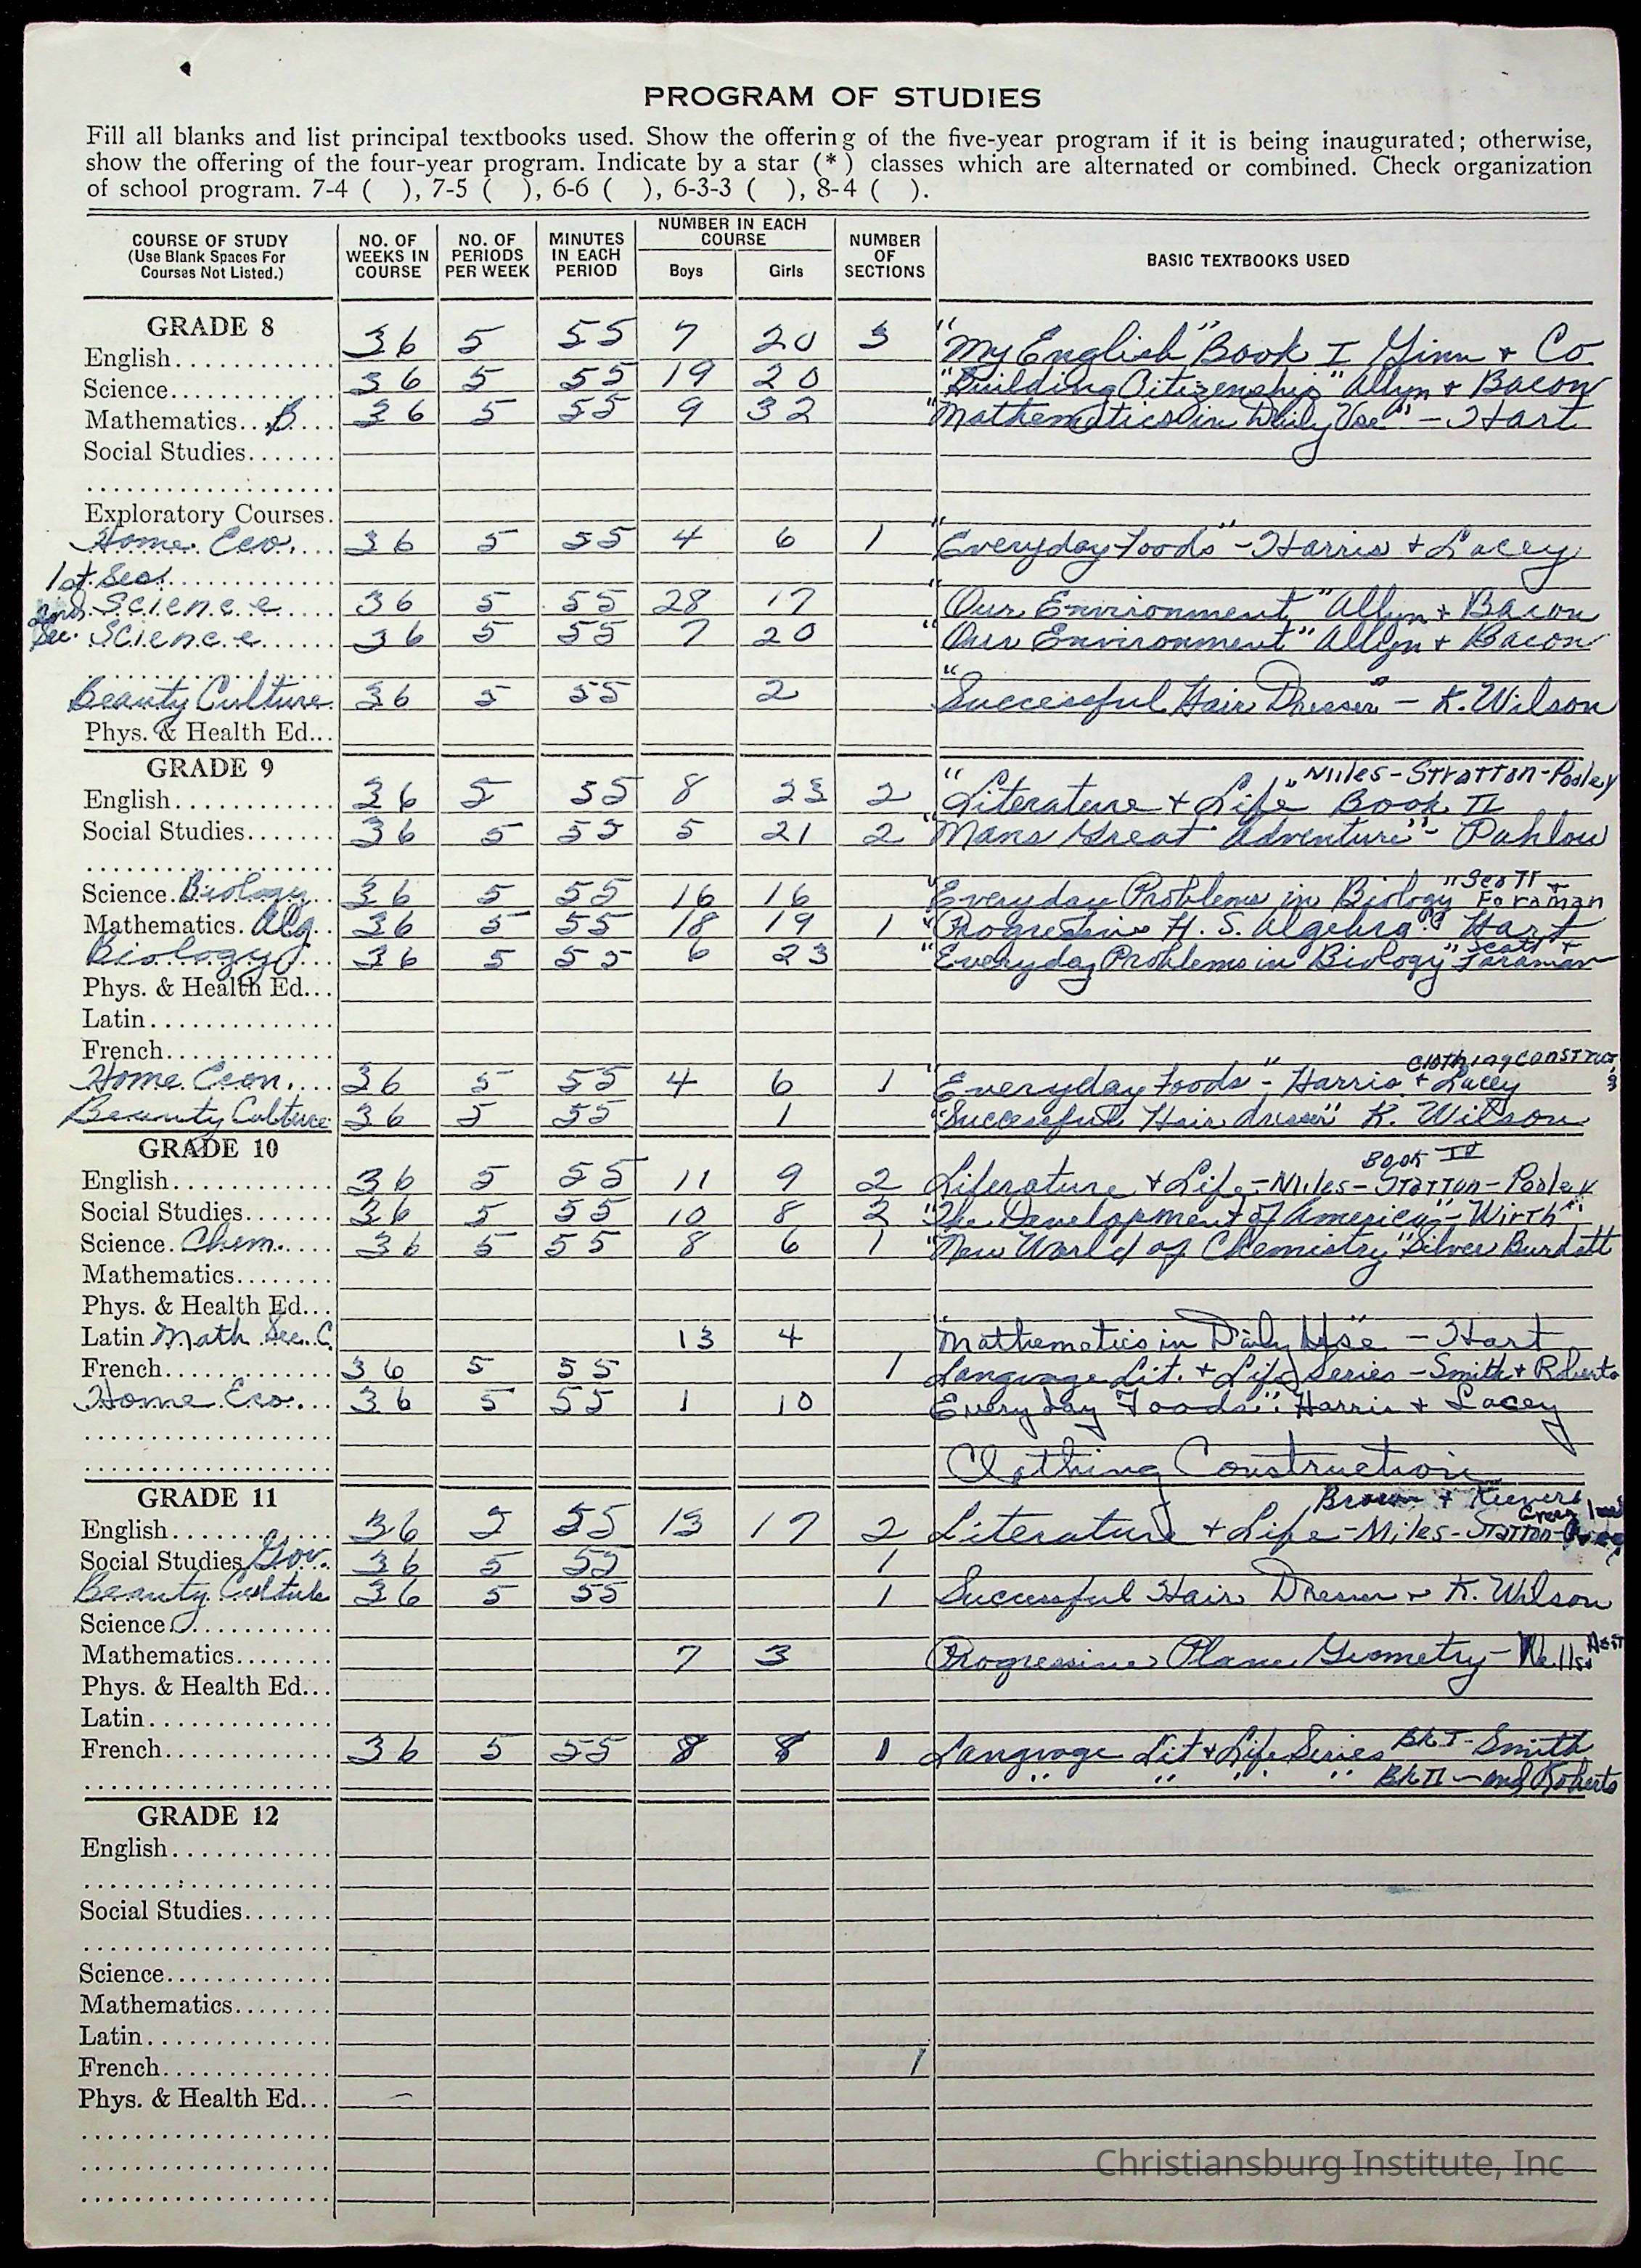 PROGRAM OF STUDIES
Fill all blanks and list principal textbooks used. Show the offering of the five-year program if it is being inaugurated; otherwise,
show the offering of the four-year program. Indicate by a star (*) classes which are alternated or combined. Check organization
of school program. 7-4 ( ), 7-5 ( ), 6-6 ( ), 6-3-3 ( ), 8-4 ( ).
COURSE OF STUDY (Use Blank Spaces For Courses Not Listed.) NO. OF WEEKS IN COURSE NO. OF PERIODS PER WEEK MINUTES IN EACH PERIOD NUMBER IN EACH COURSE Boys Girls NUMBER OF SECTIONS BASIC TEXTBOOKS USED
GRADE 8
English 36 5 55 7 20 3 "My English" Book I Ginn + Co
Science 36 5 55 19 20 "Building Citizenship" Allyn + Bacon
Mathematics B 36 5 55 9 32 "Mathematics in Daily Use" - Hart
Social Studies
Exploratory Courses
Home Eco. 36 5 55 4 6 1 "Everyday Foods" - Harris + Lacey
1st Sec.
Science 36 5 55 28 17 "Our Environment" Allyn + Bacon
2nd Sec. Science 36 5 55 7 20 "Our Environment" Allyn + Bacon
Beauty Culture 36 5 55 2 "Successful Hair Dresser" - K. Wilson
Phys. & Health Ed...
GRADE 9
English 36 5 55 8 23 2 "Literature + Life" Book II Miles-Stratton-Pooley
Social Studies 36 5 55 5 21 2 "Mans Great Adventure" - Pahlow
Science Biology 36 5 55 16 16 "Everyday Problems in Biology" Scott + Foraman
Mathematics Alg. 36 5 55 18 19 1 "Progressive H. S. Algebra" Hart
Biology 36 5 55 6 23 "Everyday Problems in Biology" Scott + Foraman
Phys. & Health Ed...
Latin
French
Home Econ. 36 5 55 4 6 1 "Everyday Foods" - Harris + Lacey
Beauty Culture 36 5 55 1 "Successful Hair dresser" K. Wilson
GRADE 10
English 36 5 55 11 9 2 Literature + Life - Miles - Stratton - Pooley Book
Social Studies 36 5 55 10 8 2 "The Development of America" - Wirth
Science Chem. 36 5 55 8 6 1 "New World of Chemistry" Silver Burdett
Mathematics
Phys. & Health Ed...
Latin Math Sec. C 13 4 "Mathematics in Daily Use" - Hart
French 36 5 55 1 Language Lit. + Life Series - Smith + Roberts
Home Eco. 36 5 55 1 10 Everyday Foods": Harris + Lacey
Clothing Construction
GRADE 11 Brown +
English 36 5 55 13 17 2 Literature + Life - Miles - Stratton -
Social Studies Gov. 36 5 55 1
Beauty Culture 36 5 55 1 Successful Hair Dresser - K. Wilson
Science
Mathematics 7 3 Progressive Plane Geometry - Wells
Phys. & Health Ed...
Latin
French 36 5 55 8 8 1 Language Lit + Life Series Bk I - Smith
" " " " Bk II - and Roberts
GRADE 12
English
Social Studies
Science
Mathematics
Latin
French 1
Phys. & Health Ed...
Christiansburg Institute, Inc